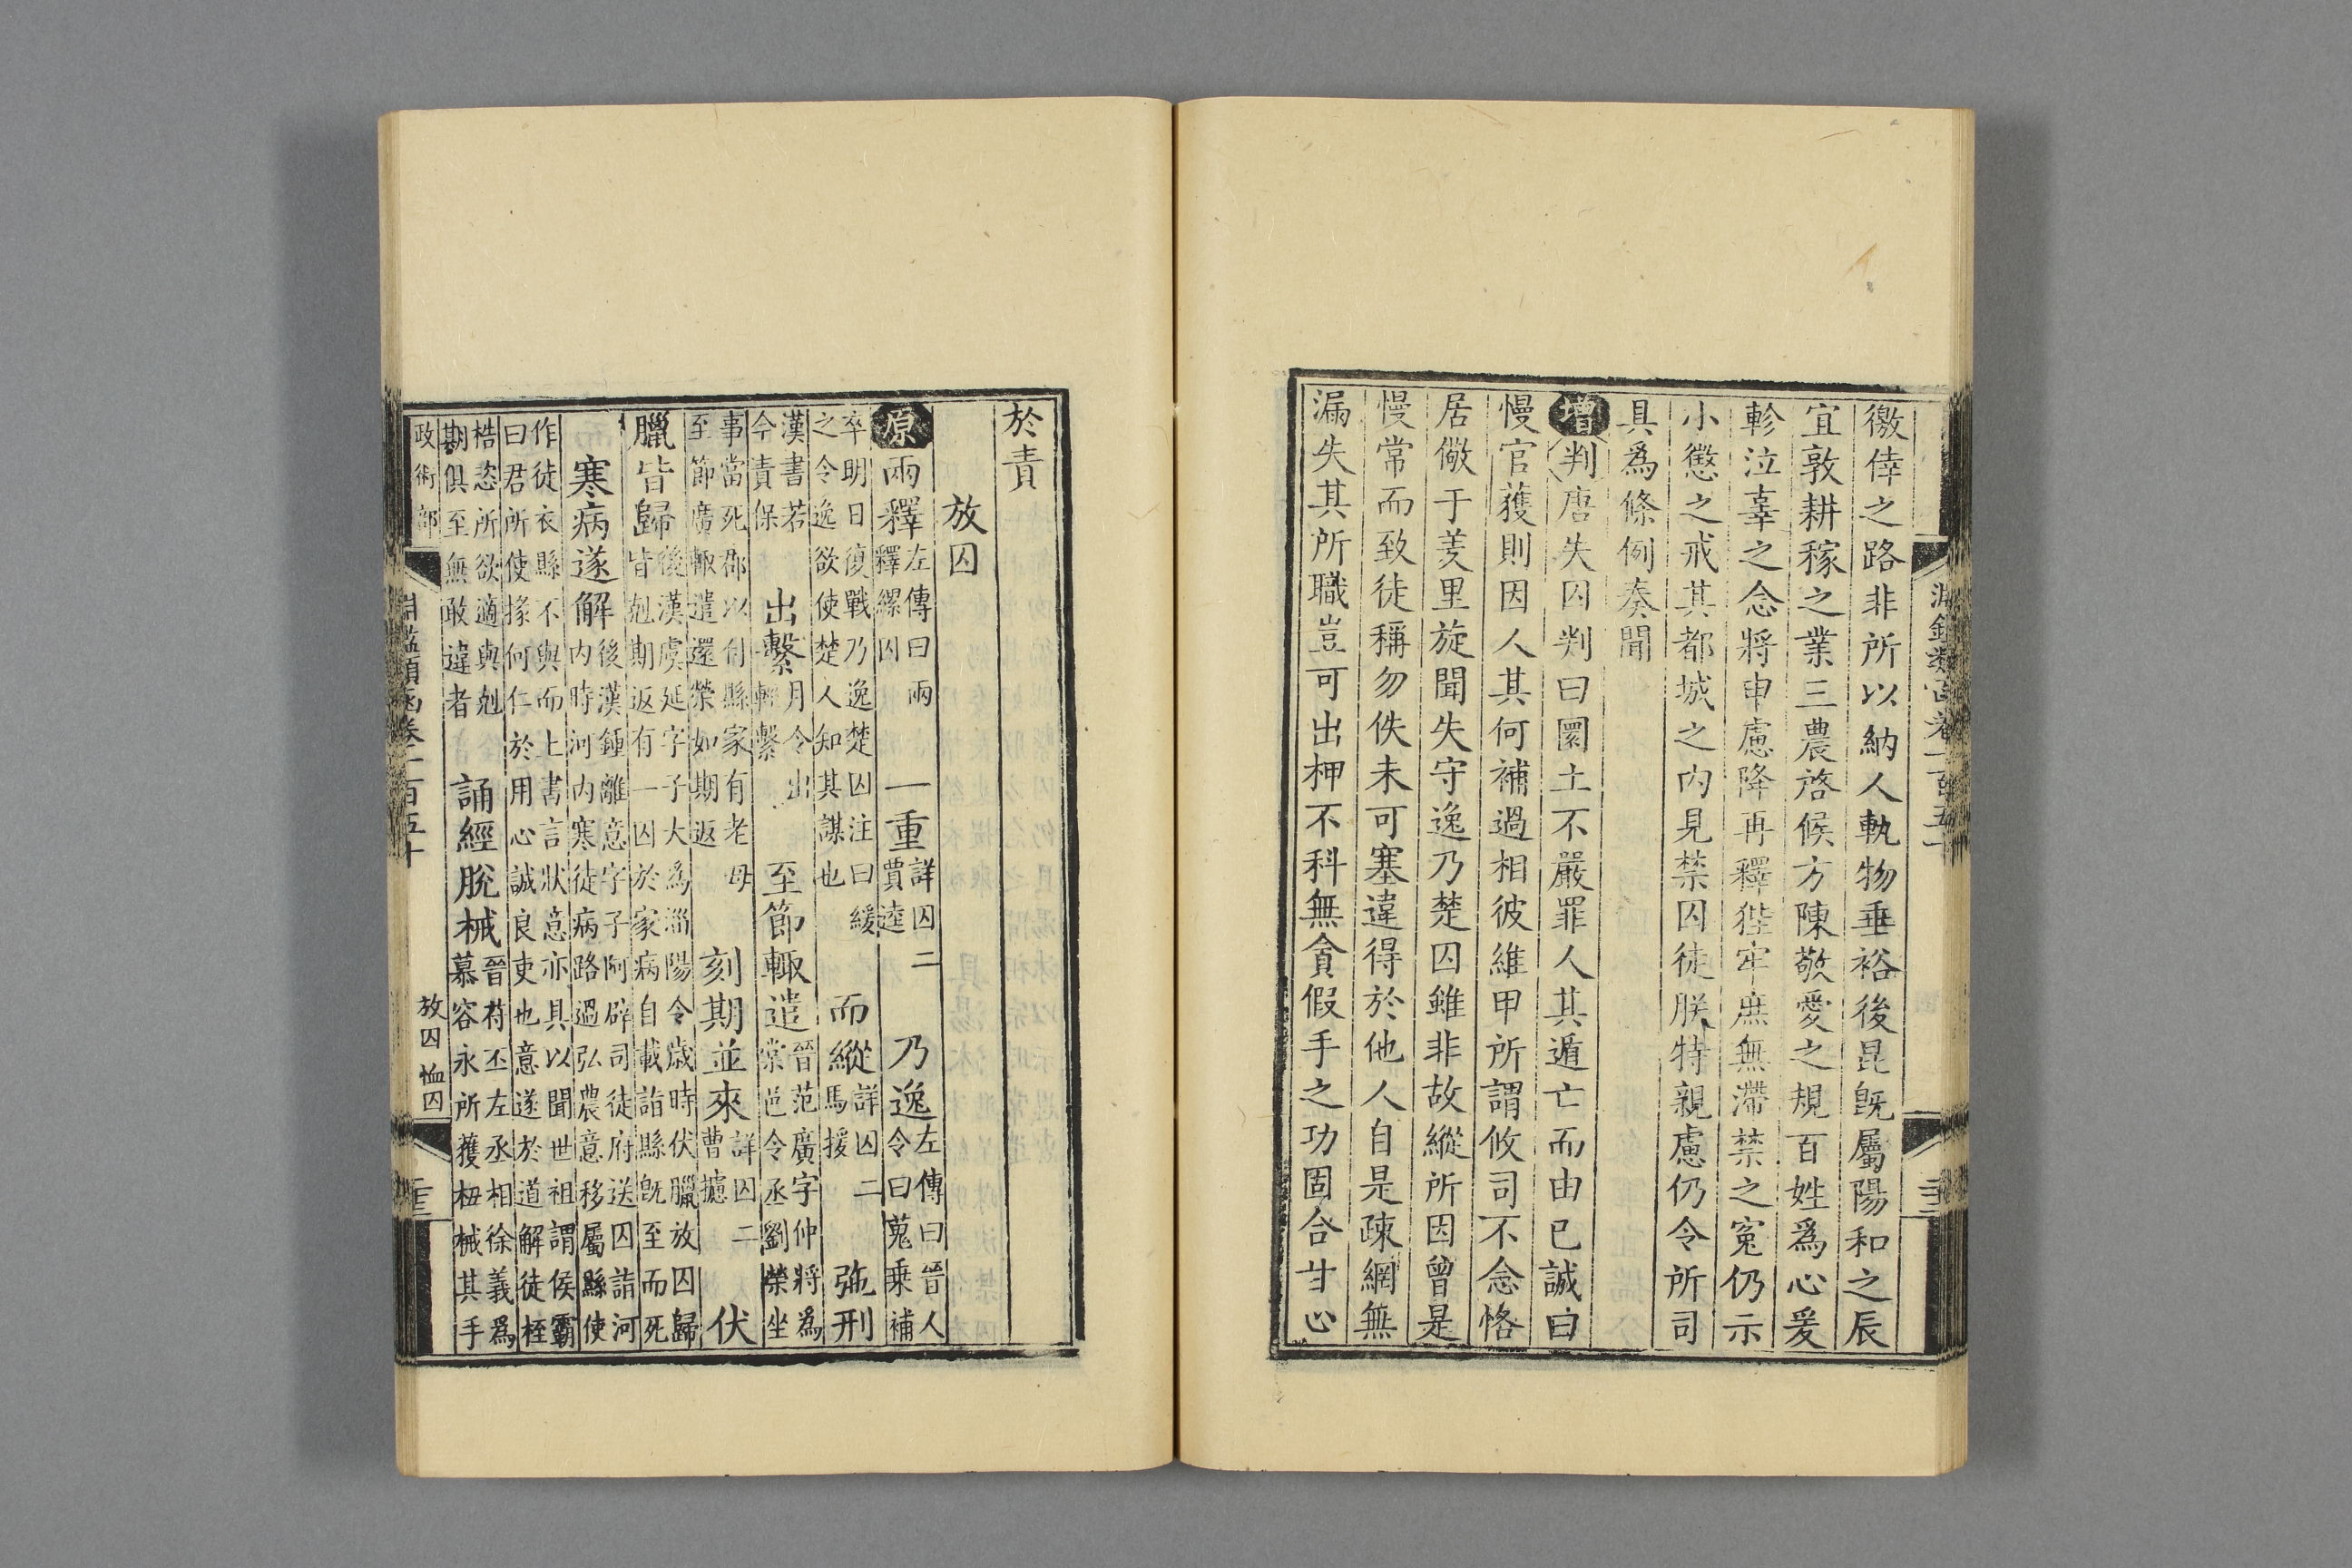 徼倖之路非所以納人執物垂裕後昆旣屬陽和之辰
宜敦耕稼之業三農啓候方陳敬愛之規百姓爲心爰
軫泣辜之念將申慮降再釋狴牢庶無滯禁之寃仍示
小懲之戒其都城之内見禁囚徒朕特親慮仍令所司
具爲條例奏聞
增判唐失囚判曰圜土不嚴罪人其遁亡而由已誠曰
慢官獲則因人其何補過相彼維甲所謂攸司不念恪
居儆于羑里旋聞失守逸乃楚囚雖非故縱所因曾是
慢常而致徒稱勿佚未可塞違得於他人自是疎網無
漏失其所職豈可出柙不科無貪假手之功固合甘心
於責
放囚
原兩釋左傳曰兩釋纍囚 一重詳囚二賈逵 乃逸左傳曰晉人令曰蒐乘補
卒明日復戰乃逸楚囚注曰緩之令逸欲使楚人知其謀也 而縱詳囚二馬援 弛刑
漢書若今責保 出繫月令出輕繫 至節輙遣晉范廣字仲將爲棠邑令丞劉榮坐
事當死郡以付縣家有老母至節廣輙遣還榮如期返 刻期並來詳囚二曹攄 伏
臘皆歸後漢虞延字子大爲淄陽令歲時伏臘放囚歸皆剋期返有一囚於家病自載詣縣旣至而死
寒病遂解後漢鍾離意字子阿辟司徒府送囚詣河内時河内寒徒病路過弘農意移屬縣使
作徒衣縣不與而上書言狀意亦具以聞世祖謂侯霸曰君所使掾何仁於用心誠良吏也意遂於道解徒桎
梏恣所欲適與剋期俱至無敢違者 誦經脫械晉苻丕左丞相徐義爲慕容永所獲杻械其手
政術部
淵鑑類函卷一百五十
放囚 恤囚